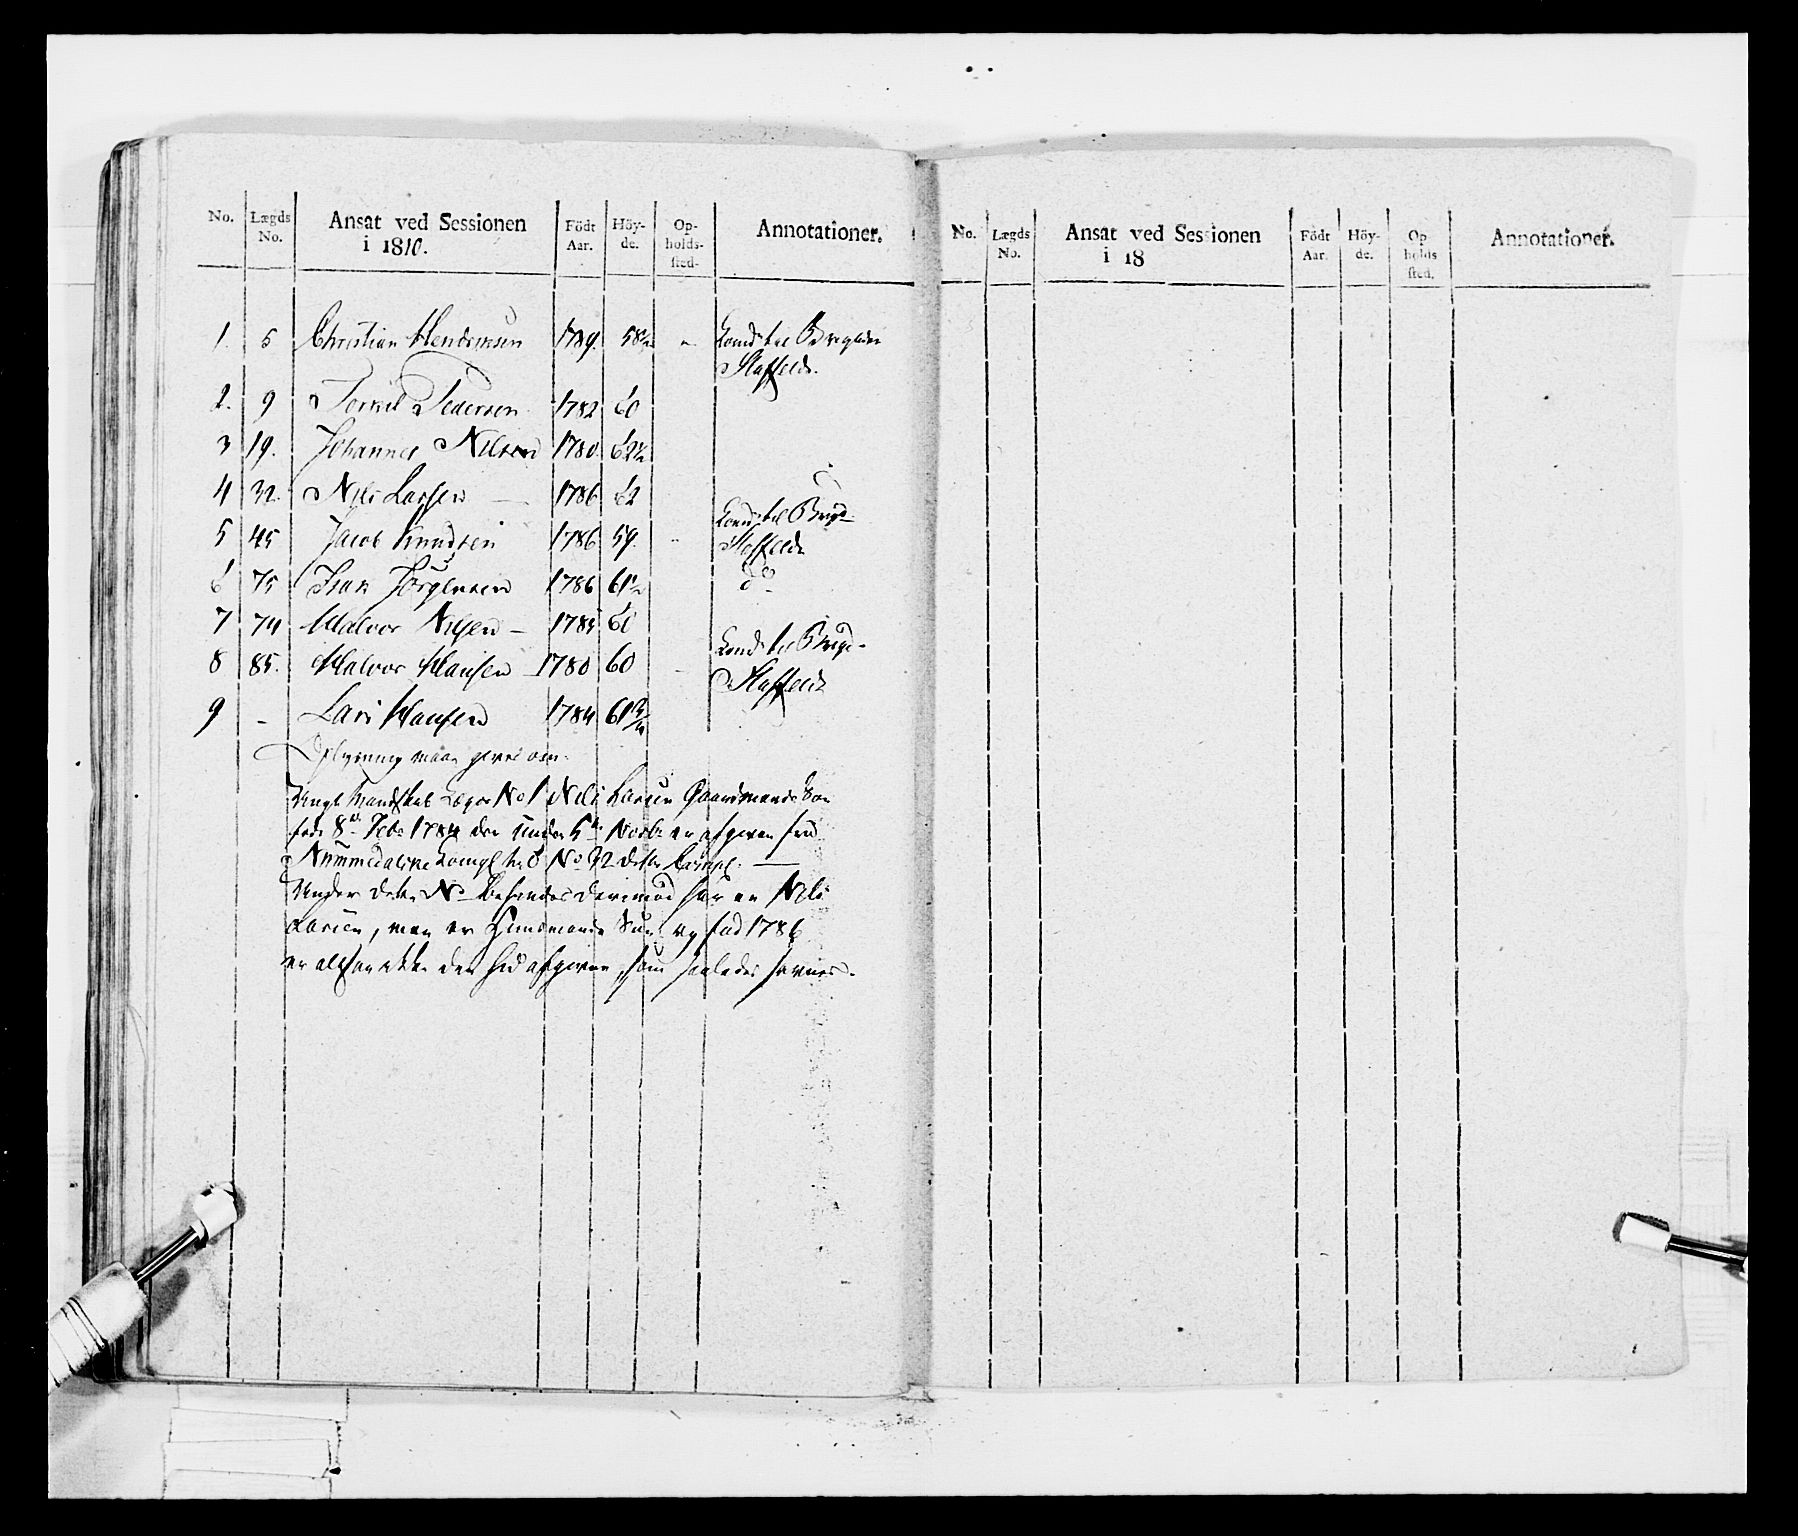 No. Lægds No. Ansat ved Sessionen i 1810. Födt Aar. Höy-de. Op-holds-sted. Annotationer.
1. 5 Christian Hendricksen 1789. 58½ " Comd: til Brigaden
Staffeldt.
2. 9 Torkil Pedersen 1782 60
3 19. Johannes Nilsen 1780. 62½
4 32. Nils Larsen — 1786 62
5 45 Jacob Knudsen 1786 59. " Comd: til Brigd:
Staffeldt
6 75 Isak Jörgensen 1786 61½ do
7 74 Halvor Nilsen — 1785 60
8 85. Halvor Hansen 1780 60 Comd: til Brigd:
Staffeldt
9 - Lars Hansen 1784 61¾
Oplysning maa gives om
Ungt Mandskab Lægds No 1 Nils Larsen Gaardmands Søn
föd 8de Febr 1784 der under 5te Novbr er afgiven fra
Nummedalske Compl til No 32 dette Compl. —
Under dette No befindes derimod her en Nils
Larsen, men er Huusmands Søn og föd 1786
er altsaa ikke den hid afgivne, som saaledes savnes.
No. Lægds No. Ansat ved Sessionen i 18 Födt Aar. Höy-de. Op-holds sted. Annotationer.